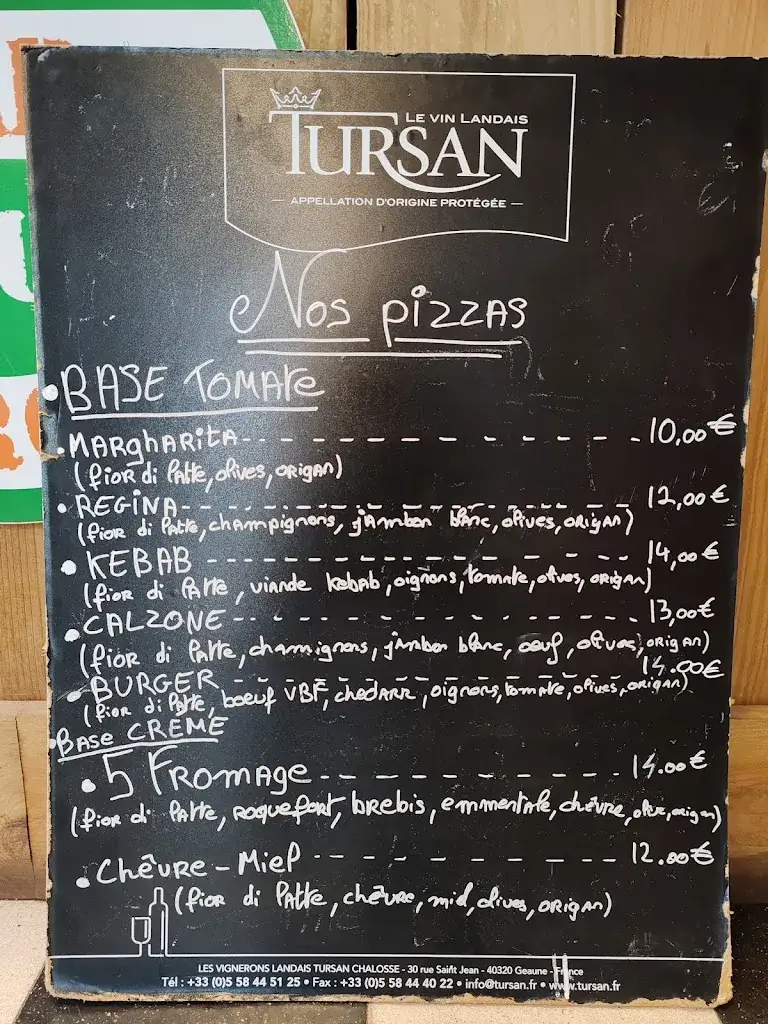 LE VIN LANDAIS
TURSAN
— APPELLATION D'ORIGINE PROTÉGÉE —
Nos pizzas
• BASE TOMATE
• MARGHARITA - - - - - - - - - 10,00€
(fior di latte, olives, origan)
• REGINA - - - - - - - - - 12,00€
(fior di latte, champignons, jambon blanc, olives, origan)
• KEBAB - - - - - - - - - 14,00€
(fior di latte, viande kebab, oignons, tomate, olives, origan)
• CALZONE - - - - - - - - - 13,00€
(fior di latte, chamignons, jambon blanc, oeuf, olives, origan)
• BURGER - - - - - - - - - 14.00€
(fior di latte, boeuf VBF, chedarr, oignons, tomate, olives, origan)
• Base CREME
• 5 Fromage - - - - - - - - - 14.00€
(fior di latte, roquefort, brebis, emmentale, chèvre, olive, origan)
• Chêvre - Miel - - - - - - - - - 12.00€
(fior di latte, chêvre, miel, olives, origan)
LES VIGNERONS LANDAIS TURSAN CHALOSSE - 30 rue Saint Jean - 40320 Geaune - France
Tél : +33 (0)5 58 44 51 25 • Fax : +33 (0)5 58 44 40 22 • info@tursan.fr • www.tursan.fr